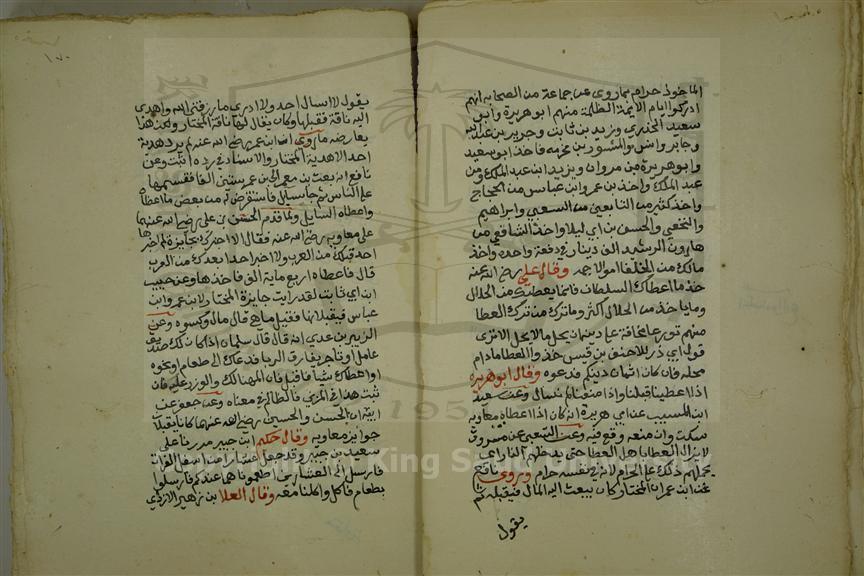 الماخوذ حرام بما روى عن جماعة من الصحابه انهم
ادركوا ايام الايمة الظلمة منهم ابو هريرة وابي
سعيد الخدري وزيد بن ثابت وجرير بن عبد الله
وجابر وانس والمسور بن مخرمه فاخذ ابو سعيد
وابو هريرة من مروان ويزيد ابن عبد الملك ومن
عبد الملك واخذ بن عمر وابن عباس من الحجاج
واخذ كثير من التابعين من الشعبي وابراهيم
والنخعي والحسن بن ابي ليلا واخذ الشافعي من
هارون الرشيد الف دينار في دفعة واحده واخذ
مالك من الخلفا اموالا جمه وقال علي رضي الله عنه
خذ ما اعطاك السلطان فانما يعطيك من الحلال
وما ياخذ من الحلال اكثر وما ترك من ترك العطا
منهم تورعا مخافة على دينهم ان يحمل ما لا يحل الا ترى
قول ابي ذر للاحنف بن قيس خذوا العطا ما دام
محله فان كان اثمان دينكم فدعوه وقال ابو هريره
اذا اعطينا قبلنا واذا منعنا لم نسال وعن سعيد
ابن المسيب عن ابي هريرة انه كان اذا اعطاه معاويه
سكت وان منعه وقع فيه وعن الشعبي عن مسروق
لا يزال العطا باهل العطا حتى يدخلهم النار اي
يحملهم ذلك على الحرام لا انه في نفسه حرام وروى نافع
عن ابن عمر ان المختار كان يبعث اليه المال فيقبله ثم
يقول
١٧٠
يقول لا اسال احد ولا ارد ما رزقني الله واهدى
اليه ناقة فقبلها وكان يقال لها ناقة المختار ولكن هذا
يعارضه ما روى ان ابن عمر رضي الله عنه لم يرد هدية
احد الا هدية المختار والاسناد في رده اثبت وعن
نافع انه بعث بن معمر الى بن عمر ستين الفا فقسمها
على الناس ثم جا سايل فاستقرض له من بعض ما اعطاه
واعطاه السايل ولما قدم الحسن بن علي رضي الله عنهما
على معاويه رضي الله عنه فقال الا اجيزك بجايزة لم اجزها
احد قبلك من العرب ولا اجيز احد بعدك من العرب
قال فاعطاه اربع ماية الف فاخذها وعن حبيب
ابن ابي ثابت لقد رايت جايزة المختار لابن عمر وابن
عباس فيقبلانها فقيل ما هي قال مال وكسوه وعن
الزبير بن عدي انه قال قال سلمان اذا كان لك صديق
عامل او تاجر يقارف الربا فدعاك الى طعام او نحوه
او اعطاك شيا فاقبل فان المهنا لك والوزر عليه فان
ثبت هذا في المربي فالظالم في معناه وعن جعفر عن
ابيه ان الحسن والحسين رضي الله عنهما كانا يقبلان
جوايز معاويه وقال حكيم ابن جبير مررنا على
سعيد بن جبير وقد جعل عشارا من اسفل الفرات
فارسل الى العشارين اطعمونا مما عندكم فارسلوا
بطعام فاكل واكلنا معه وقال العلا بن زهير الازدي
King Saud
195